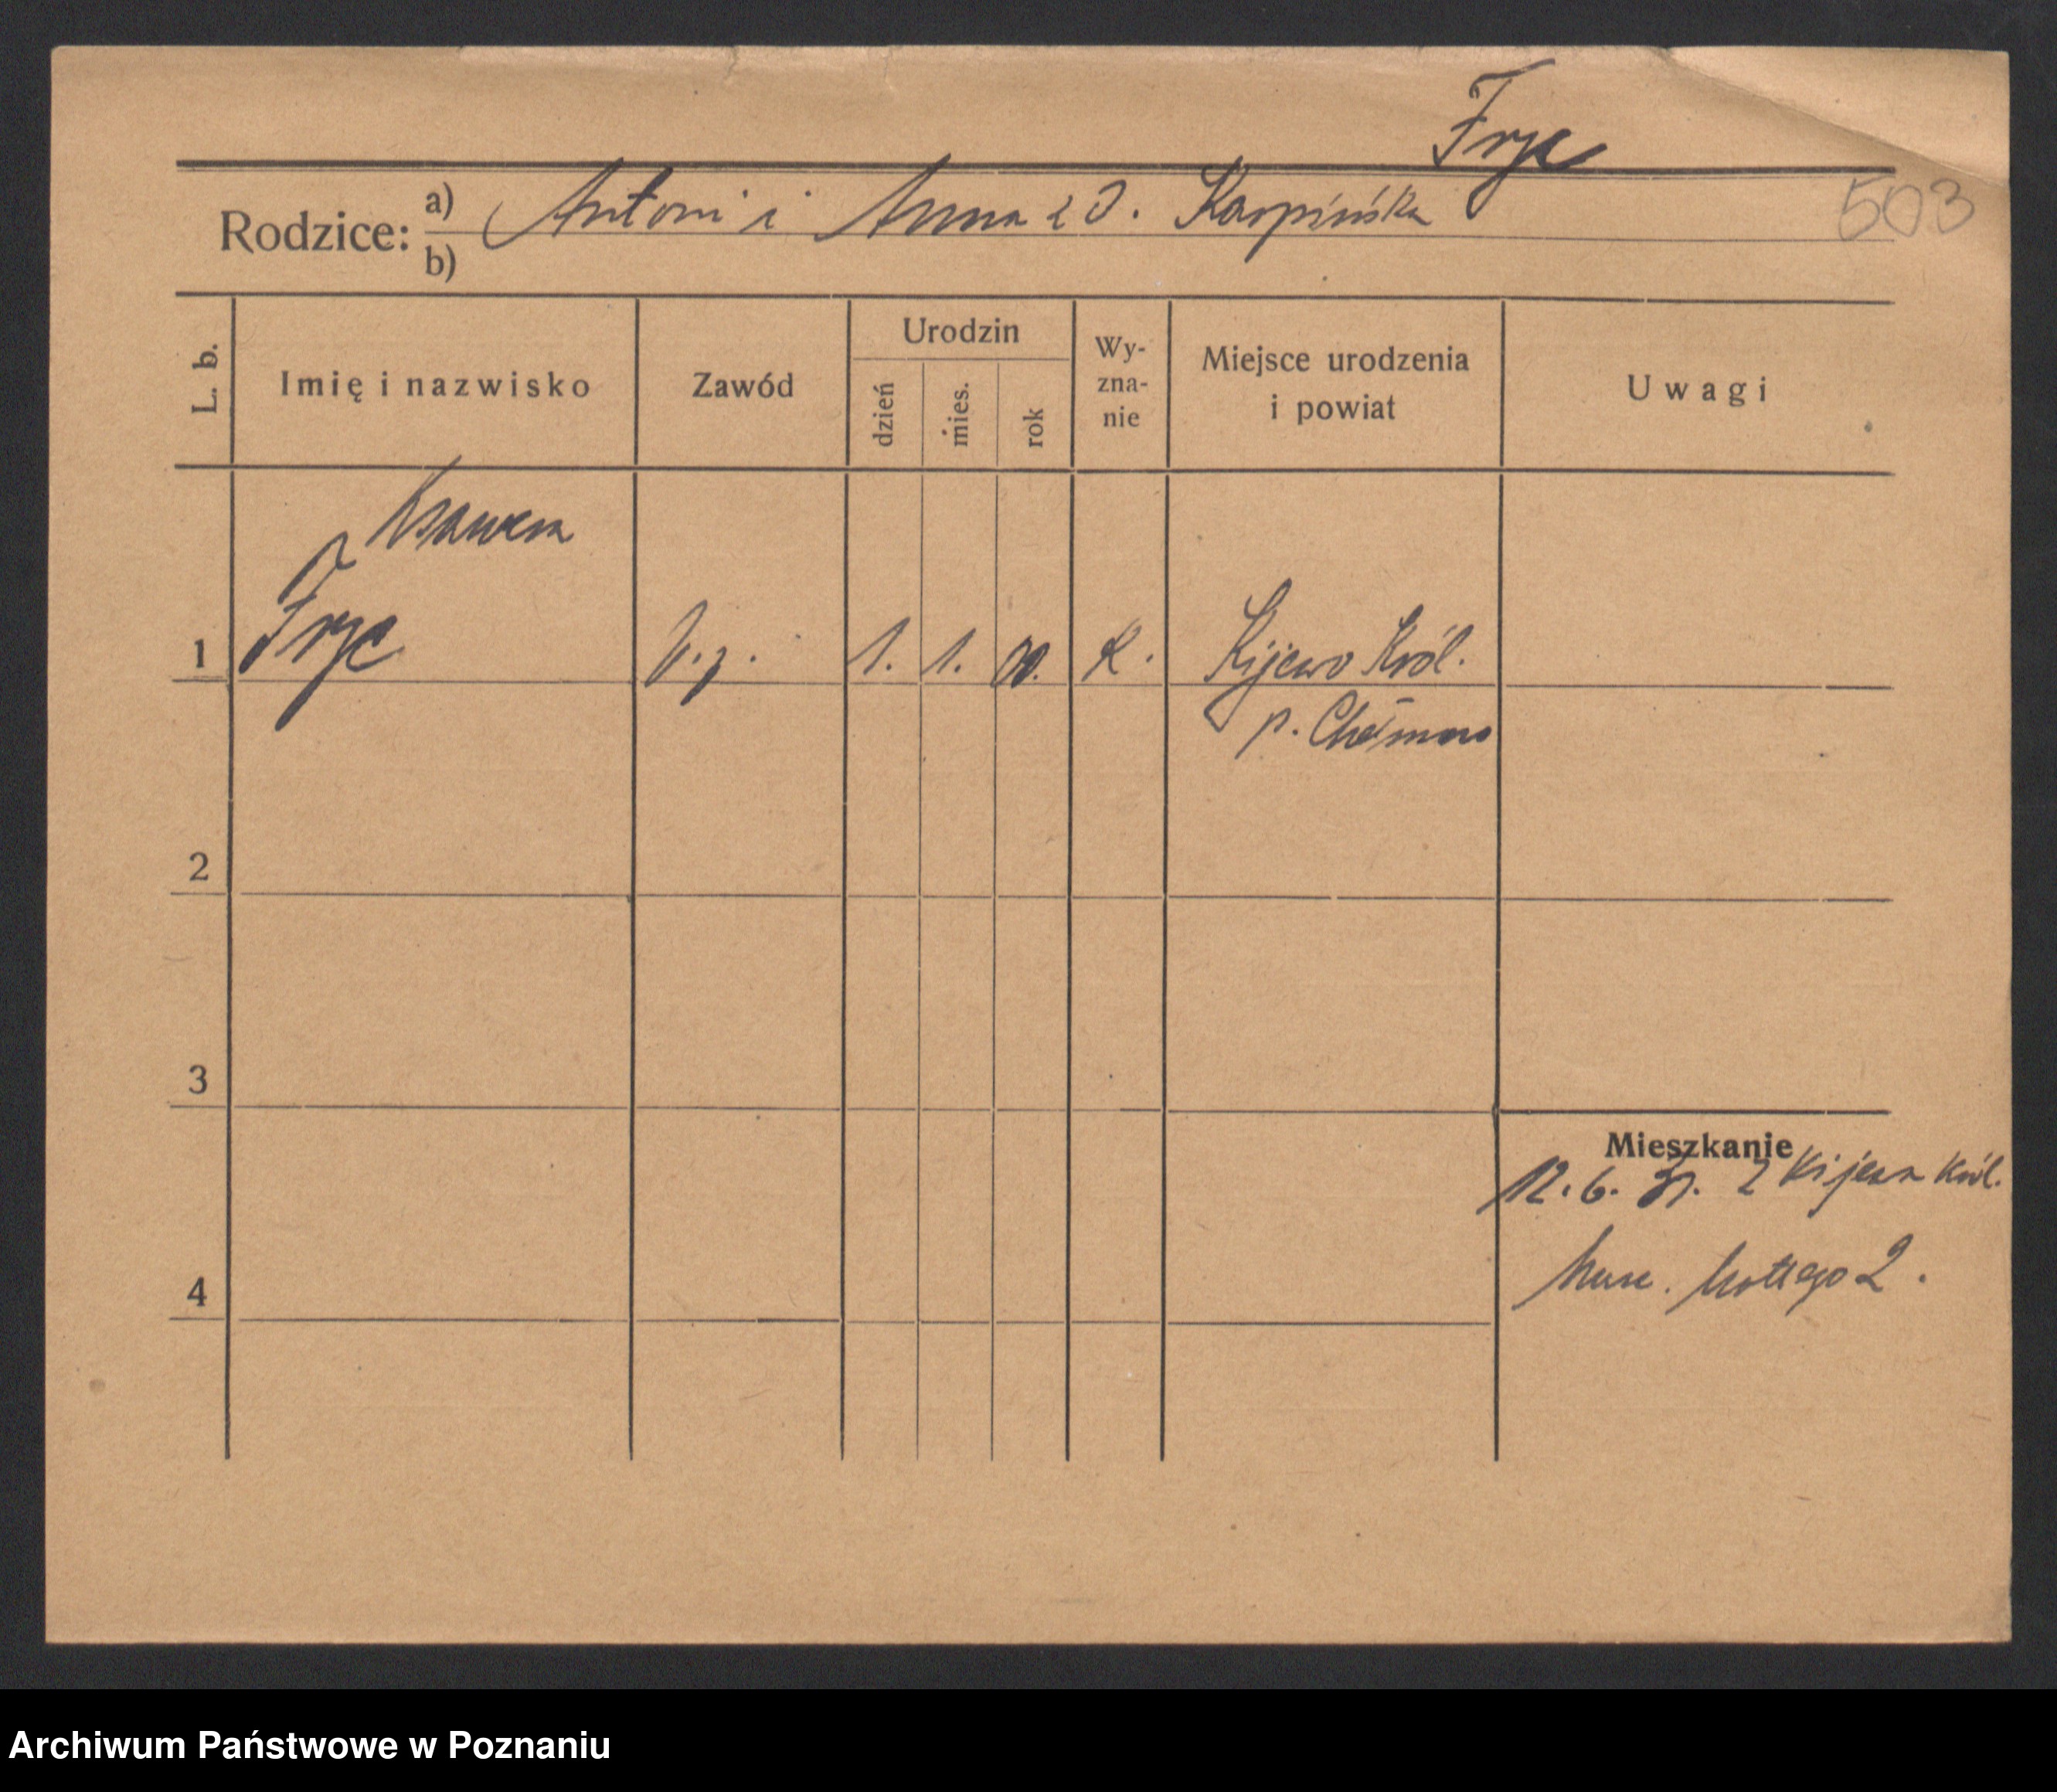 Fryc
503
Rodzice: a) Antoni i Anna z d. Karpińska
b)
L. b.
Imię i nazwisko
Zawód
Urodzin
dzień
mies.
rok
Wy-
zna-
nie
Miejsce urodzenia
i powiat
Uwagi
Ksawera
Fryc
1
1. 1. 00. K.
Kijewo Król.
p. Chełmno
2
3
Mieszkanie
12. 6. z Kijewa Król.
2.
4
Archiwum Państwowe w Poznaniu